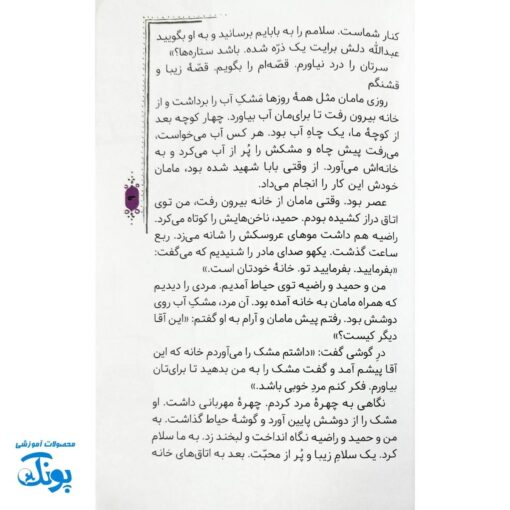 کنار شماست. سلامم را به بابایم برسانید و به او بگویید
عبدالله دلش برایت یک ذرّه شده. باشد ستاره‌ها؟»
سرتان را درد نیاورم. قصّه‌ام را بگویم. قصّهٔ زیبا و
قشنگم
روزی مامان مثل همهٔ روزها مَشکِ آب را برداشت و از
خانه بیرون رفت تا برای‌مان آب بیاورد. چهار کوچه بعد
از کوچهٔ ما، یک چاهِ آب بود. هر کس آب می‌خواست،
می‌رفت پیش چاه و مشکش را پُر از آب می‌کرد و به
خانه‌اش می‌آورد. از وقتی بابا شهید شده بود، مامان
خودش این کار را انجام می‌داد.
عصر بود. وقتی مامان از خانه بیرون رفت، من توی
اتاق دراز کشیده بودم. حمید، ناخن‌هایش را کوتاه می‌کرد.
راضیه هم داشت موهای عروسکش را شانه می‌زد. ربع
ساعت گذشت. یکهو صدای مادر را شنیدیم که می‌گفت:
«بفرمایید. بفرمایید تو. خانهٔ خودتان است.»
من و حمید و راضیه توی حیاط آمدیم. مردی را دیدیم
که همراه مامان به خانه آمده بود. آن مرد، مشکِ آب روی
دوشش بود. رفتم پیش مامان و آرام به او گفتم: «این آقا
دیگر کیست؟»
درِ گوشی گفت: «داشتم مشک را می‌آوردم خانه که این
آقا پیشم آمد و گفت مشک را به من بدهید تا برای‌تان
بیاورم. فکر کنم مردِ خوبی باشد.»
نگاهی به چهرهٔ مرد کردم. چهرهٔ مهربانی داشت. او
مشک را از دوشش پایین آورد و گوشهٔ حیاط گذاشت. به
من و حمید و راضیه نگاه انداخت و لبخند زد. به ما سلام
کرد. یک سلامِ زیبا و پُر از محبّت. بعد به اتاق‌های خانه
محصولات آموزشی
پونک